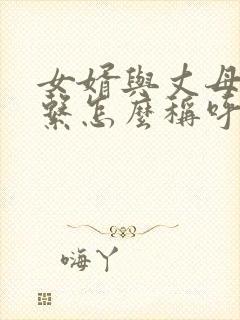 女婿與丈母
繫怎麼稱呼
嗨丫